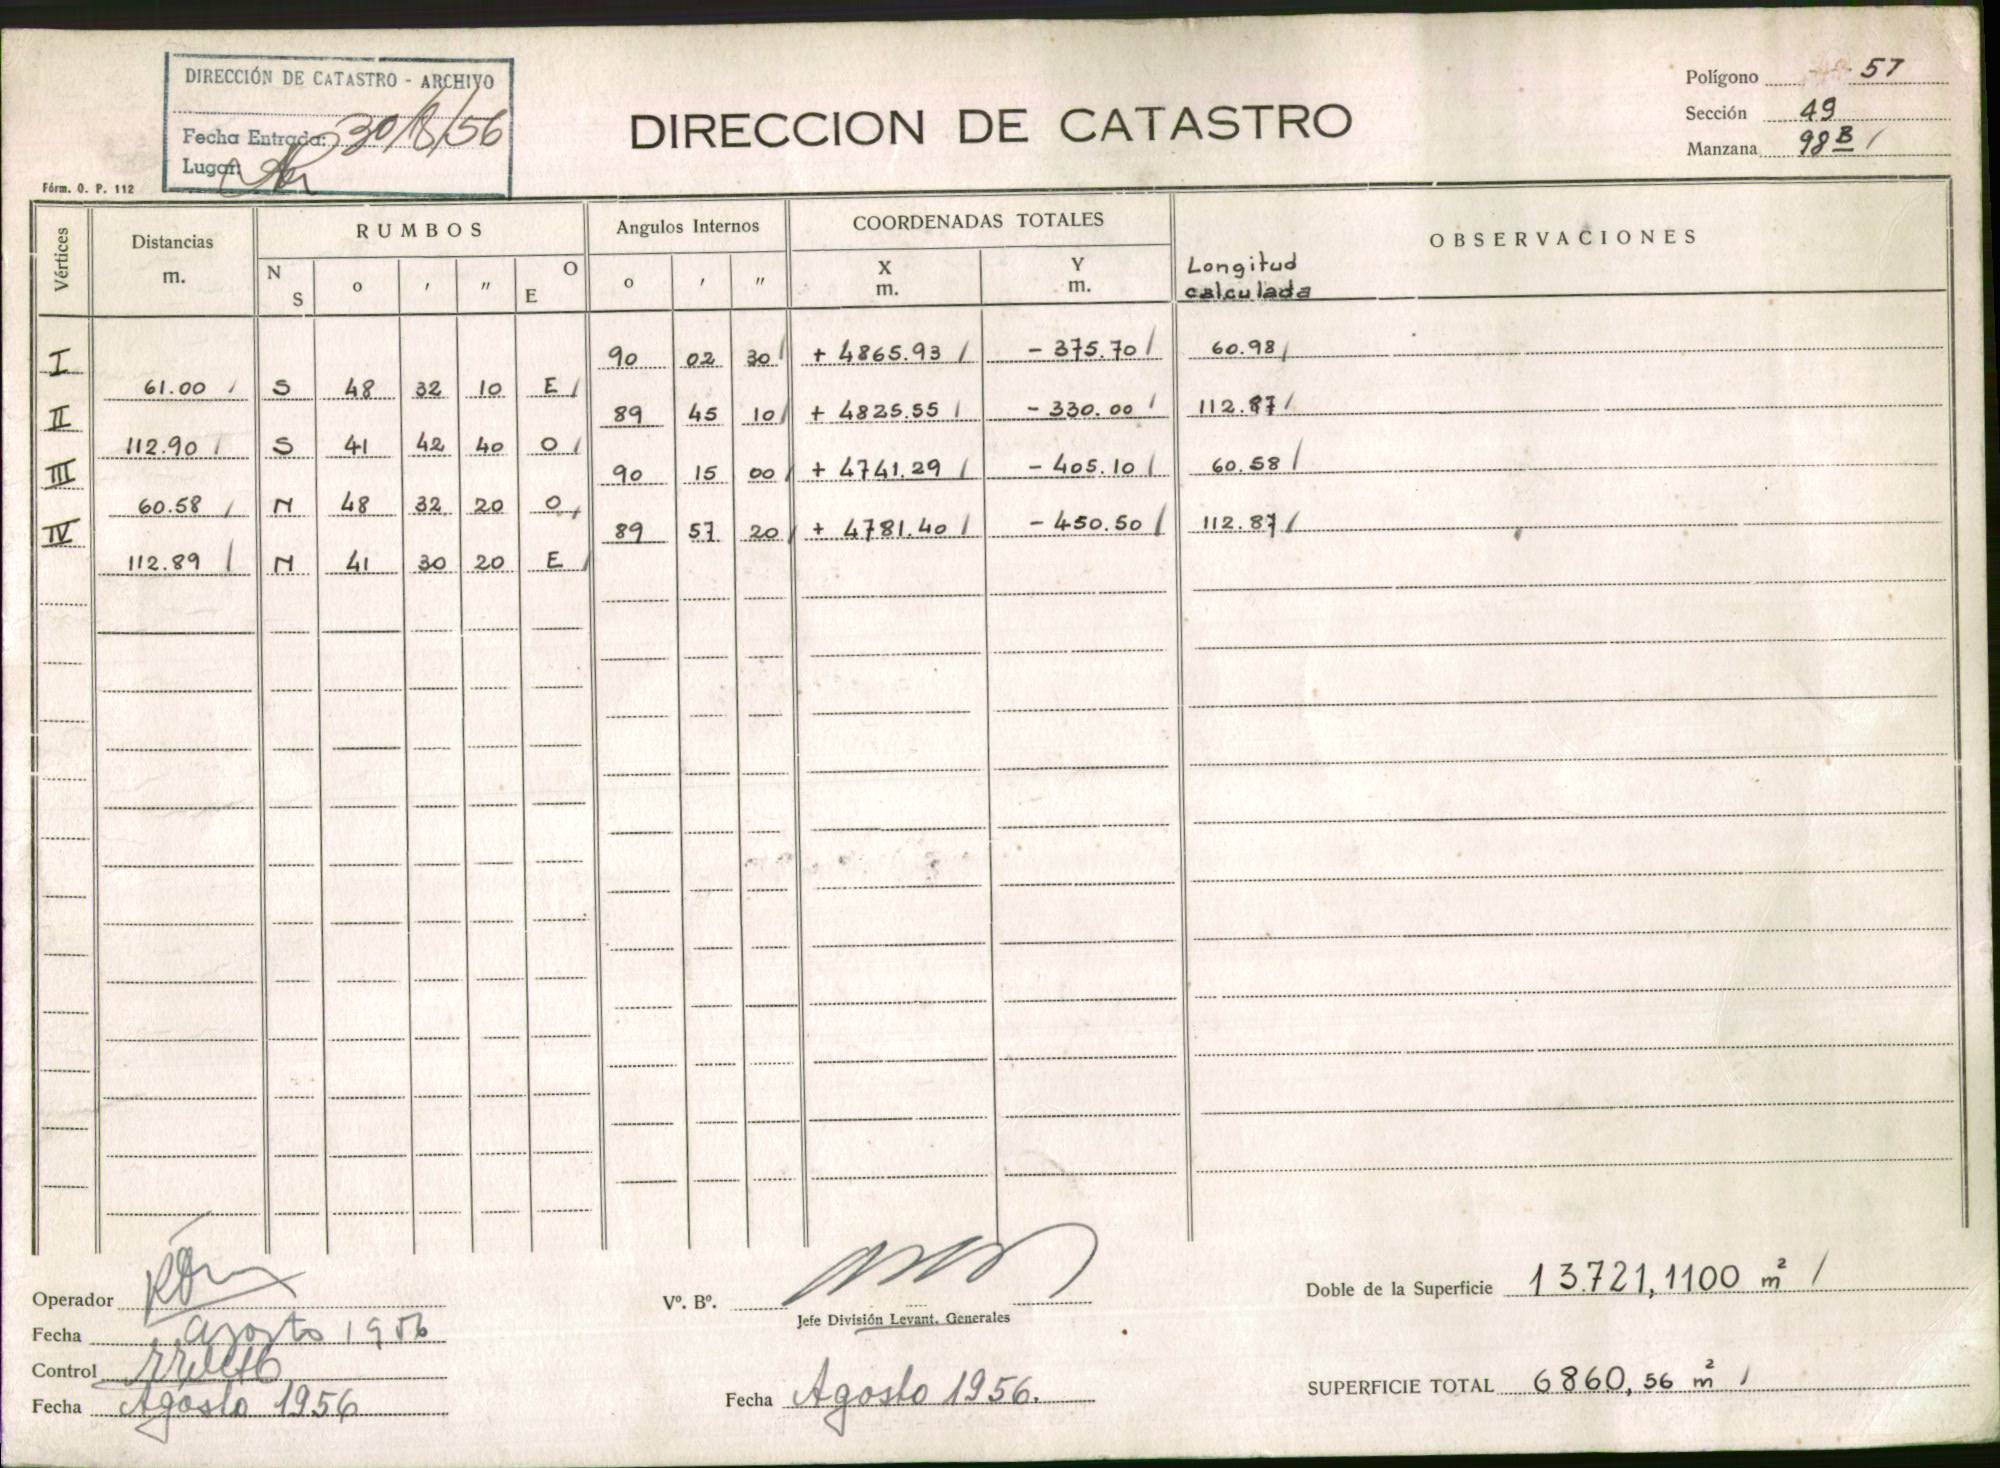 DIRECCIÓN DE CATASTRO - ARCHIVO
Fecha Entrada: 30/8/56
Lugar:
Fórm. O. P. 112
DIRECCION DE CATASTRO
Polígono 57
Sección 49
Manzana 98 B /
Vértices Distancias m. RUMBOS Angulos Internos COORDENADAS TOTALES OBSERVACIONES
N S o ' " O E o ' " X m. Y m. Longitud calculada
I 90 02 30 / + 4865.93 / - 375.70 / 60.98 /
61.00 / S 48 32 10 E /
II 89 45 10 / + 4825.55 / - 330.00 / 112.87 /
112.90 / S 41 42 40 O /
III 90 15 00 / + 4741.29 / - 405.10 / 60.58 /
60.58 / N 48 32 20 O /
IV 89 57 20 / + 4781.40 / - 450.50 / 112.87 /
112.89 / N 41 30 20 E /
Operador
Fecha agosto 1956
Control
Fecha Agosto 1956
Vº. Bº.
Jefe División Levant. Generales
Fecha Agosto 1956.
Doble de la Superficie 13.721,1100 m² /
SUPERFICIE TOTAL 6860,56 m² /